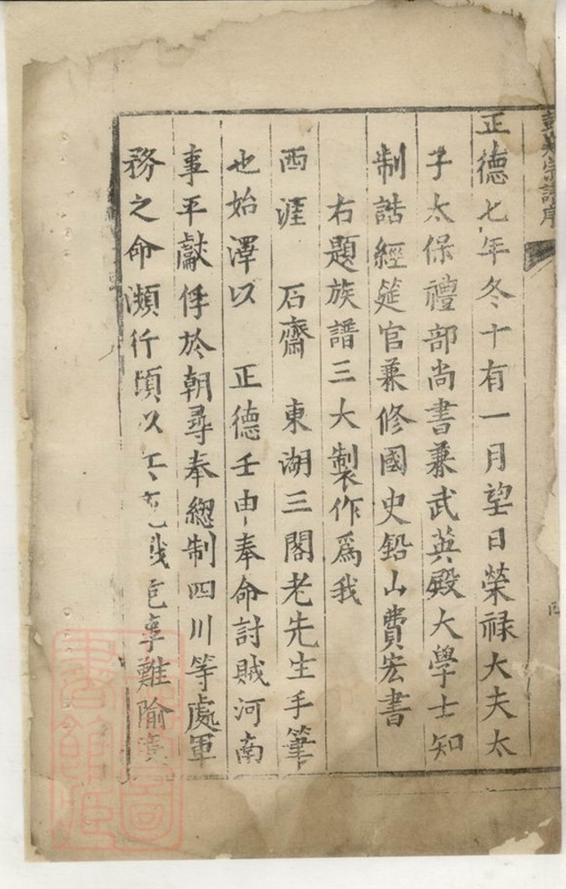 正德七年冬十有一月望日榮祿大夫太
子太保禮部尚書兼武英殿大學士知
制誥經筵官兼修國史鉛山費宏書
右題族譜三大製作爲我
西涯 石齋 東湖三閣老先生手筆
也始澤以 正德壬申奉命討賊河南
事平獻俘於朝尋奉總制四川等處軍
務之命瀕行頃以
難隃